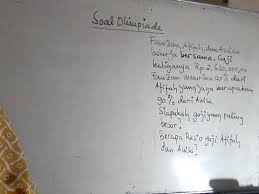 Soal Olimpiade
Fauzan, Afifah, dan Annisa
bekerja bersama. Gaji
ketiganya Rp 2.620.000,00
Fauzan menerima % dari
Afifah yang juga merupakan
90% dari
Siapakah gaji yang paling
besar.
Berapa rasio gaji Afifah
dan